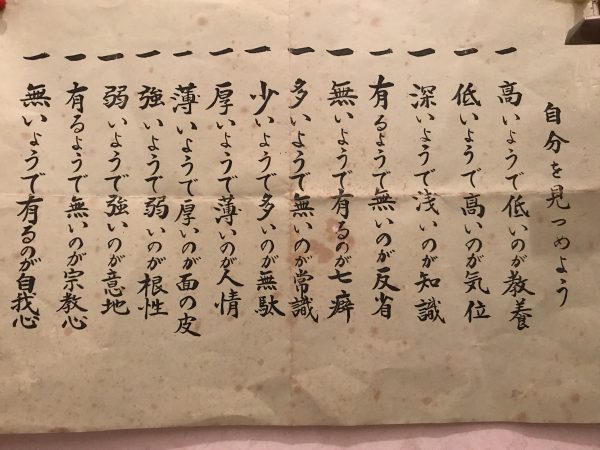 自分を見つめよう
一 高いようで低いのが教養
一 低いようで高いのが気位
一 深いようで浅いのが知識
一 有るようで無いのが反省
一 無いようで有るのが七癖
一 多いようで無いのが常識
一 少いようで多いのが無駄
一 厚いようで薄いのが人情
一 薄いようで厚いのが面の皮
一 強いようで弱いのが根性
一 弱いようで強いのが意地
一 有るようで無いのが宗教心
一 無いようで有るのが自我心